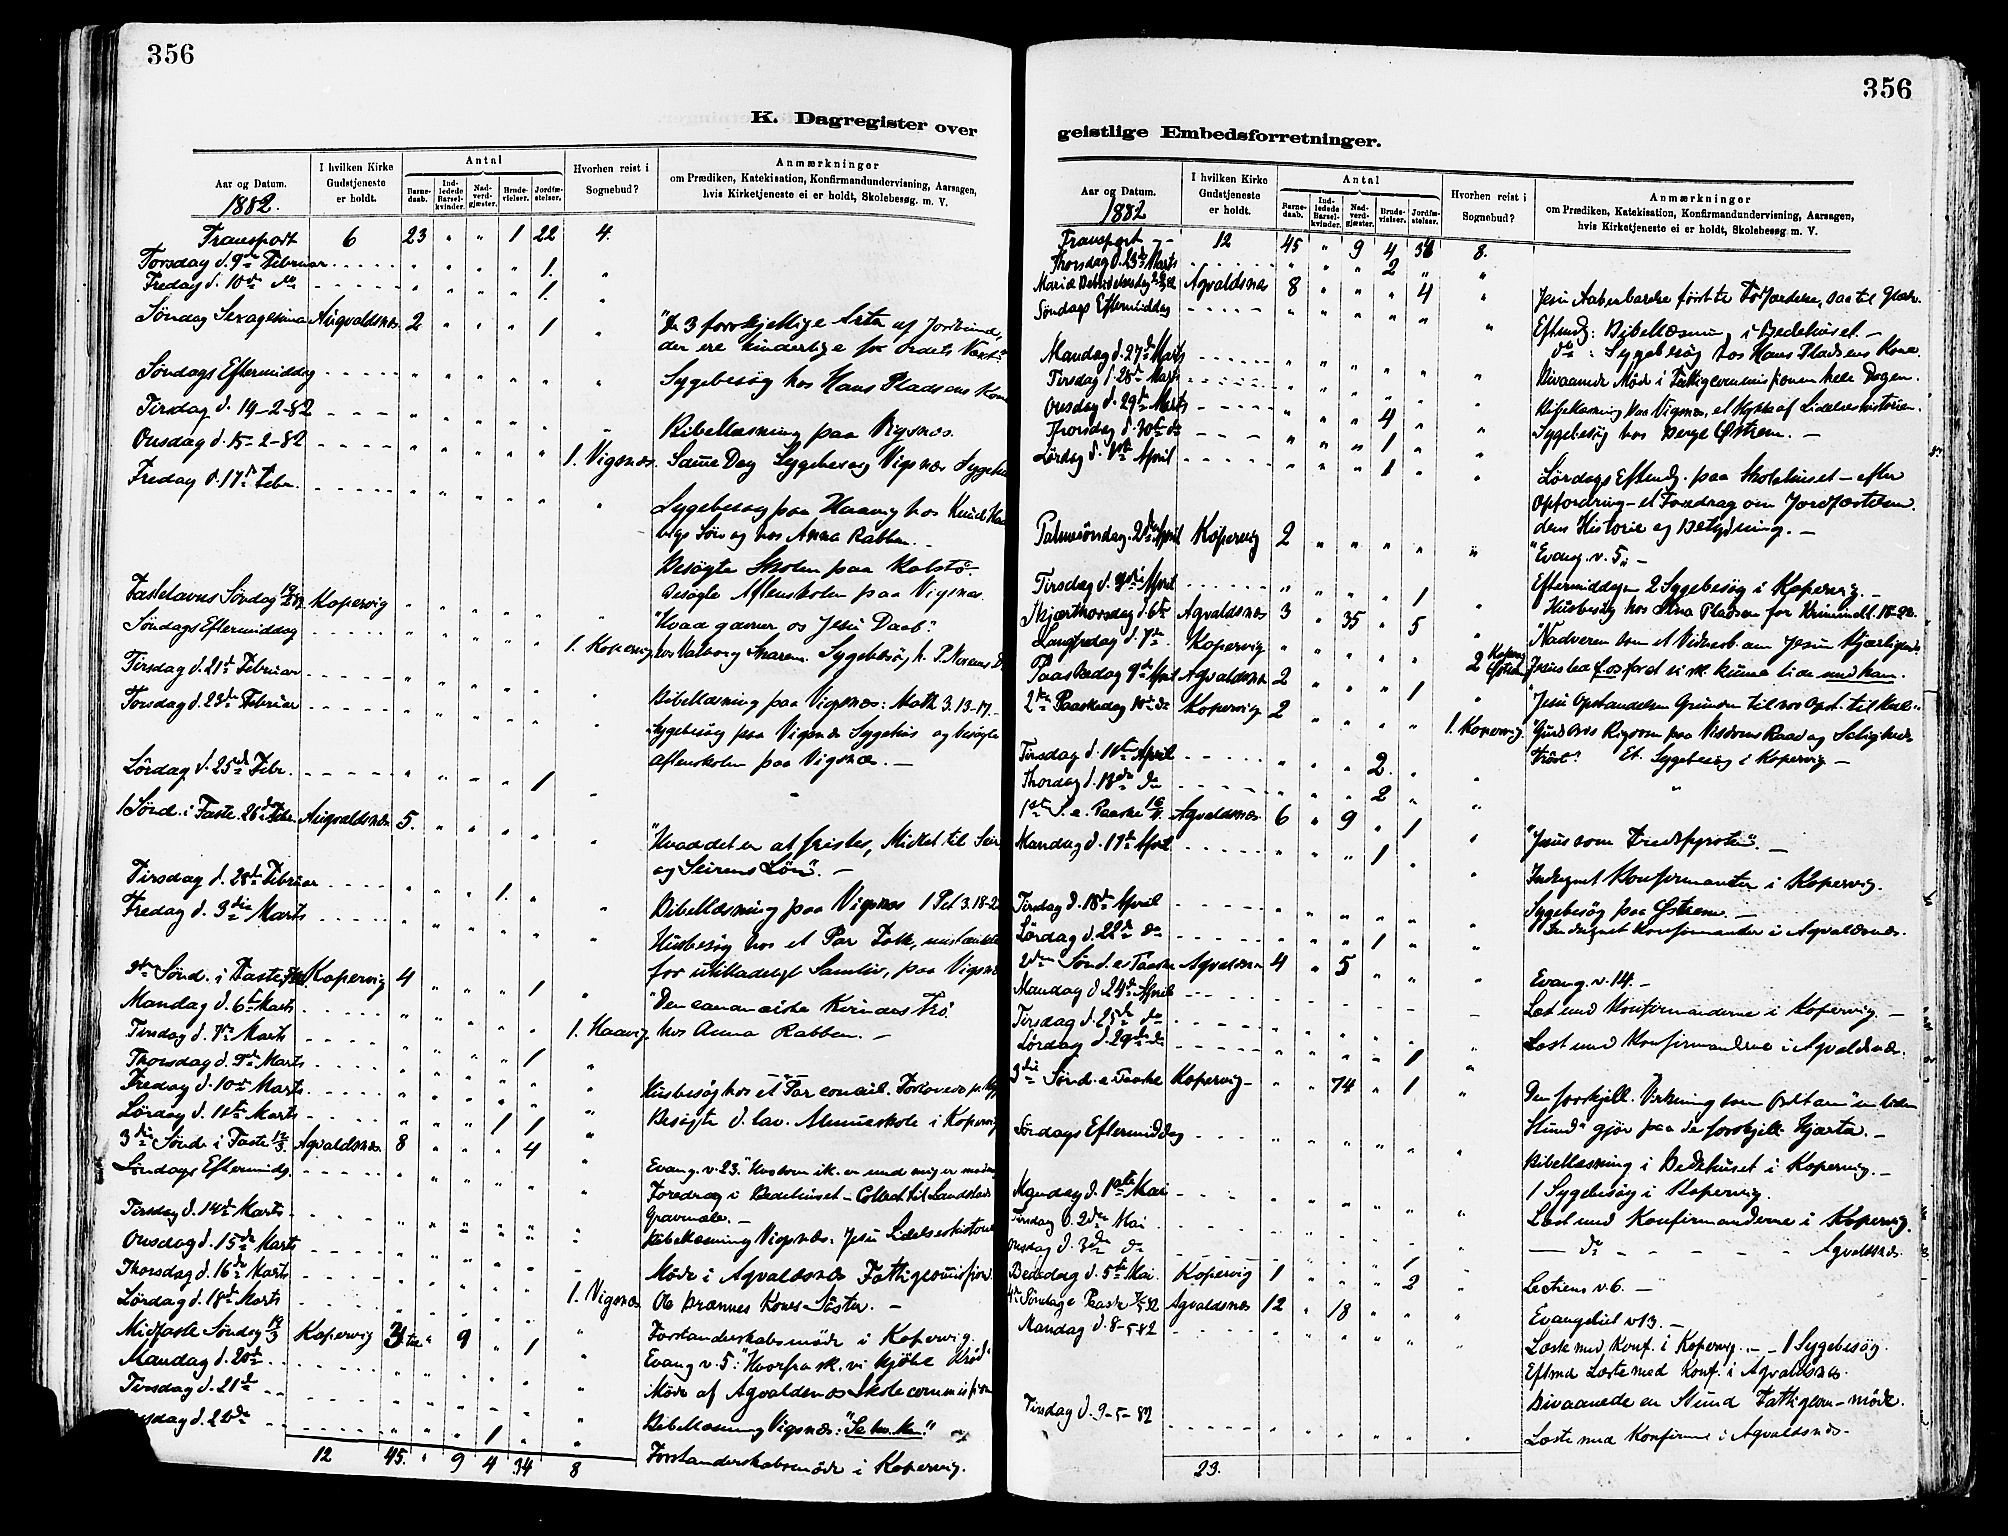 356
K. Dagregister over
Aar og Datum.
1882.
I hvilken Kirke Gudstjeneste er holdt.
Antal
Barnedaab.
Indledede Barselkvinder.
Nadverdgjæster.
Brudevielser.
Jordfæstelser.
Hvorhen reist i Sognebud?
Anmærkninger
om Prædiken, Katekisation, Konfirmandundervisning, Aarsagen,
hvis Kirketjeneste ei er holdt, Skolebesøg. m. V.
Transport 6 23 " " 1 22 4.
Torsdag d. 9de Februar " " " " 1. "
Fredag d. 10de do " " " " 1. "
Søndag Sexagesima Augvaldsnæs 2 " " " 1 " "De 3 forskjellige Arter af Jordbund,
der ere hinderlige for Ordets Vækst."
Søndags Eftermiddag " " " " " " Sygebesøg hos Hans Pladsens Kone
Tirsdag d. 14-2-82 " " " " " " Bibellæsning paa Vigsnæs.
Onsdag d. 15-2-82 " " " " " 1. Vigsnæs. Samme Dag Sygebesøg Vigsnæs
Fredag d. 17de Febr. " " " " " " Sygebesøg paa Haavig hos Knud
Søn og hos Anna Rabben.
Besøgte Skolen paa Kalstø.
Besøgte Aftenskolen paa Vigsnæs.
Fastelavns Søndag Kopervig " " " " " " "Hvad gavner os Jesu Daab".
Søndags Eftermiddag " " " " " 1. Kopervig hos Valborg Sygebesøg h. P.
Tirsdag d. 21de Februar " " " " " " Bibellæsning paa Vigsnæs: Math 3. 13-17.
Torsdag d. 23de Februar " " " " " " Sygebesøg paa Vigsnæs Sygehus og besøgte
Aftenskolen paa Vigsnæs.
Lørdag d. 25de Febr. " " " " 1 " "
1 Sønd. i Faste 26de Febr. Augvaldsnæs 5. " " " " " "Hvad det er at fristes, Midlet til Seir
og Seirens Løn".
Tirsdag d. 28de Februar " " " 1. " " Bibellæsning paa Vigsnæs 1 Pet 3.18-2
Fredag d. 3die Marts " " " " " " Husbesøg hos et Par Folk, mistænkte
for utilladeligt Samliv, paa Vigsnæs
2den Sønd. i Faste Kopervig 4 " " " 1 " "Den cananæiske Kvindes Tro".
Mandag d. 6te Marts " " " " " 1. Haavig hos Anna Rabben.
Tirsdag d. 7de Marts
Thorsdag d. 9de Marts " " " " 1 "
Fredag d. 10de Marts " " " " " " Husbesøg hos et Par
Lørdag d. 11te Marts " " " 1 1 " Besøgte d. lav. Almueskole i Kopervig
3die Sønd. i Faste 12/3 Agvaldsnæs 8 " " " 4 " Evang. v. 23.
Søndags Eftermidg. Foredrag i Bedehuset - Collect til Landstads
Gravmæle.
Tirsdag d. 14de Marts " " " " " " Bibellæsning Vigsnæs: Jesu Lidelseshistorie
Onsdag d. 15de Marts " " " " " " Møde i Agvaldsnæs Fattigcommission.
Thorsdag d. 16de Marts " " " " " 1. Vigsnæs Ole Brænnes Kones Søster.
Lørdag d. 18de Marts " " " " " " Forstanderskabsmøde i Kopervig.
Midfaste Søndag 19/3 Kopervig 3 " 9 " 1 " Evang v. 5: "Hvorfra sk. vi kjøbe Brød"
Mandag d. 20de Møde af Agvaldsnæs Skolecommission
Tirsdag d. 21de Bibellæsning Vigsnæs:
Onsdag d. 22de " " " 1 " " Forstanderskabsmøde i Kopervig.
12 45. " 9 4 34 8
356
geistlige Embedsforretninger.
Aar og Datum.
1882
I hvilken Kirke Gudstjeneste er holdt.
Antal
Barnedaab.
Indledede Barselkvinder.
Nadverdgjæster.
Brudevielser.
Jordfæstelser.
Hvorhen reist i Sognebud?
Anmærkninger
om Prædiken, Katekisation, Konfirmandundervisning, Aarsagen,
hvis Kirketjeneste ei er holdt, Skolebesøg. m. V.
Transport 12 45 " 9 4 34 8.
Thorsdag d. 23de Marts " " " 2 " "
Mariæ Bebudelsesdag Agvaldsnæs 8 " " " 4 "
Søndags Eftermiddag " " " " " " Eftmdg: Bibellæsning i Bedehuset.
do: Sygebesøg hos Hans Pladsens Kone.
Mandag d. 27de Marts Bivaanede Møde i Fattigcommissionen hele Dagen.
Tirsdag d. 28de Marts Bibellæsning paa Vigsnæs, et Stykke af Lidelseshistorien.
Onsdag d. 29de Marts " " " 4 " " Sygebesøg hos Børge Østrem.
Thorsdag d. 30te do " " " 1 " "
Lørdag d. 1ste April " " " 1 " " Lørdags Eftmdg. paa Skolehuset - efter
Opfordring - et Foredrag om Jordfæstelsen
dens Historie og Betydning.
Palmesøndag 2den April Kopervig 2 " " " " " Evang. v. 5.
Eftermiddagen 2 Sygebesøg i Kopervig.
Tirsdag d. 4de April " " " " 1 "
Skjærthorsdag d. 6te Agvaldsnæs 3 " 35 " 5 " "Nadveren som et Vidnesb. om Jesu Kjærlighed"
Langfredag d. 7de Kopervig " " " " " 2 Kopervig Østrem
Paaskedag 9de April Agvaldsnæs 2 " " " 1 "
2den Paaskedag 10de do Kopervig 2 " " " " 1. Kopervig
Trøst". Et Sygebesøg i Kopervig
Tirsdag d. 11te April " " " 2. " "
Thordag d. 13de do " " " 2 " " "
1ste S. e. Paaske 16/4 Agvaldsnæs 6 " 9 " 1 " "Jesus som Fredsfyrste".
Mandag d. 17de April " " " 1 " " Indtegnet Konfirmanter i Kopervig.
Tirsdag d. 18de April " " " " " " Sygebesøg paa Østrem.
Lørdag d. 22de do " " " 1 " " Indtegnet Konfirmanter i Agvaldsnæs.
2den Sønd. e. Paaske Agvaldsnæs 4 " 5 " " " Evang. v. 14.
Mandag d 24de April Læst med Konfirmanderne i Kopervig.
Tirsdag d. 25de do Læst med Konfirmanderne i Agvaldsnæs.
Lørdag d. 29de do " " " " 1 "
3die Sønd. e. Paaske Kopervig " " 74 " 1 " Den forskjell. Virkning som Ordet om "en liden
Stund" gjør paa de forskjell. Hjærter.
Søndags Eftermiddag " " " " " " Bibellæsning i Bedehuset i Kopervig.
1 Sygebesøg i Kopervig.
Mandag d. 1ste Mai " " " " " " Læst med Konfirmanderne i Kopervig.
Tirsdag d. 2den Mai do Agvaldsnæs.
Onsdag d. 3de do " " " " 1 "
Bededag d. 5te Mai. Kopervig 1 " " " 2 " Lectiens v. 6.
4de Søndag e Paaske 7/5 82 Agvaldsnæs 12 " 18 " " " Evangeliet v 13.
Mandag d. 8-5-82 Læste med Konf. i Kopervig. 1 Sygebesøg.
Eftmd Læste med Konf. i Agvaldsnæs.
Bivaanede en Stund Fattigcom-møde.
Tirsdag d. 9-5-82 Læste med Konfirm i Agvaldsnæs.
23.